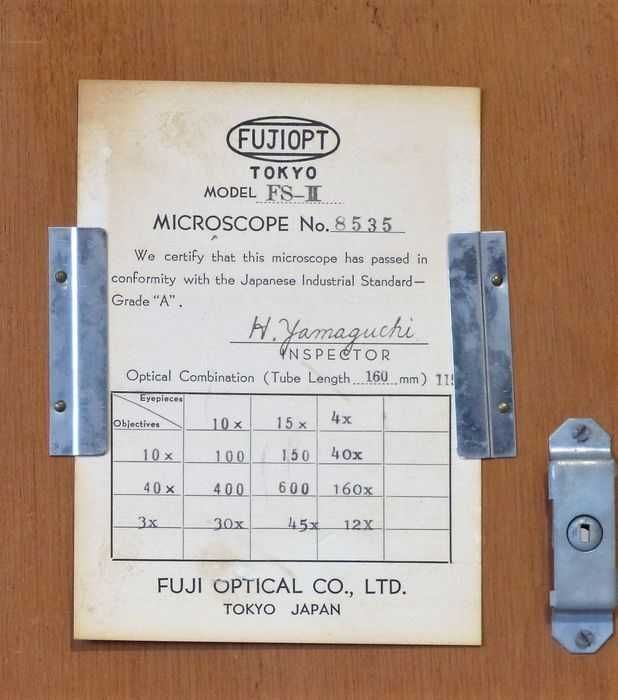 FUJIOPT
TOKYO
MODEL FS-II
MICROSCOPE No. 8535
We certify that this microscope has passed in
conformity with the Japanese Industrial Standard—
Grade "A".
H. Yamaguchi
INSPECTOR
Optical Combination (Tube Length 160 mm)
Eyepieces
Objectives 10x 15x 4x
10x 100 150 40x
40x 400 600 160x
3x 30x 45x 12X
FUJI OPTICAL CO., LTD.
TOKYO JAPAN